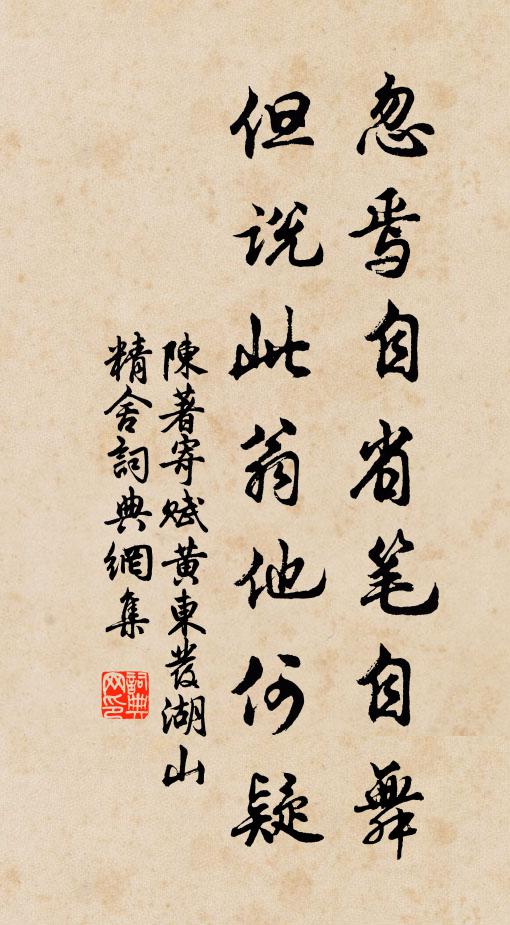 忽焉自省笔自舞
但说此翁他何疑
陳著寄赋黄東發湖山
精舍詞典網集
詞典网印